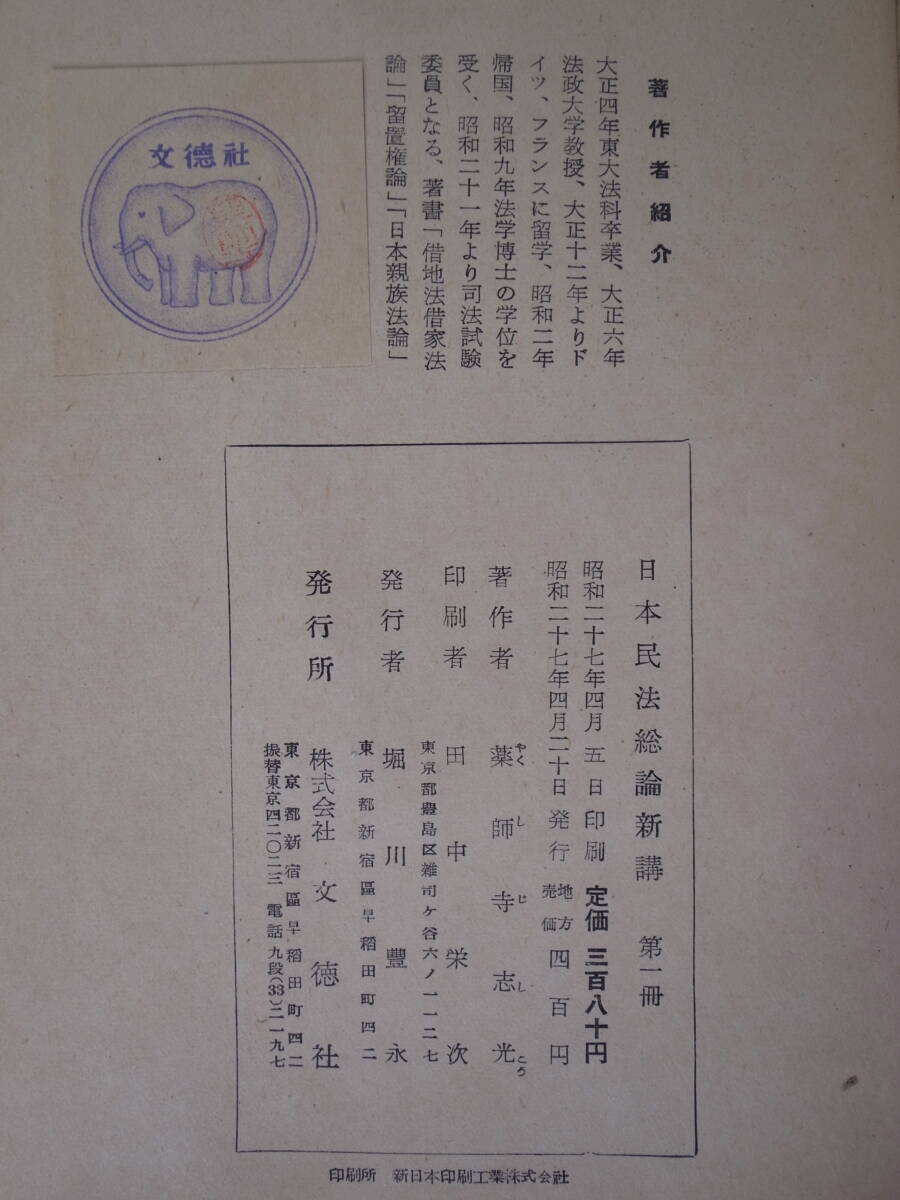 著作者紹介
大正四年東大法科卒業、大正六年
法政大学教授、大正十二年よりド
イツ、フランスに留学、昭和二年
帰国、昭和九年法学博士の学位を
受く、昭和二十一年より司法試験
委員となる、著書「借地法借家法
論」「留置権論」「日本親族法論」
文德社
日本民法総論新講 第一冊
昭和二十七年四月 五 日 印刷 定価 三百八十円
昭和二十七年四月二十日 発行 地方売価 四百円
著作者 薬師寺志光
やくしじしこう
印刷者 田中栄次
東京都豊島区雑司ケ谷六ノ一一二七
発行者 堀川豊永
東京都新宿區早稲田町四二
発行所 株式会社 文徳社
東京都新宿區早稲田町四二
振替東京四二〇二三 電話九段(33)二一九七
印刷所 新日本印刷工業株式会社